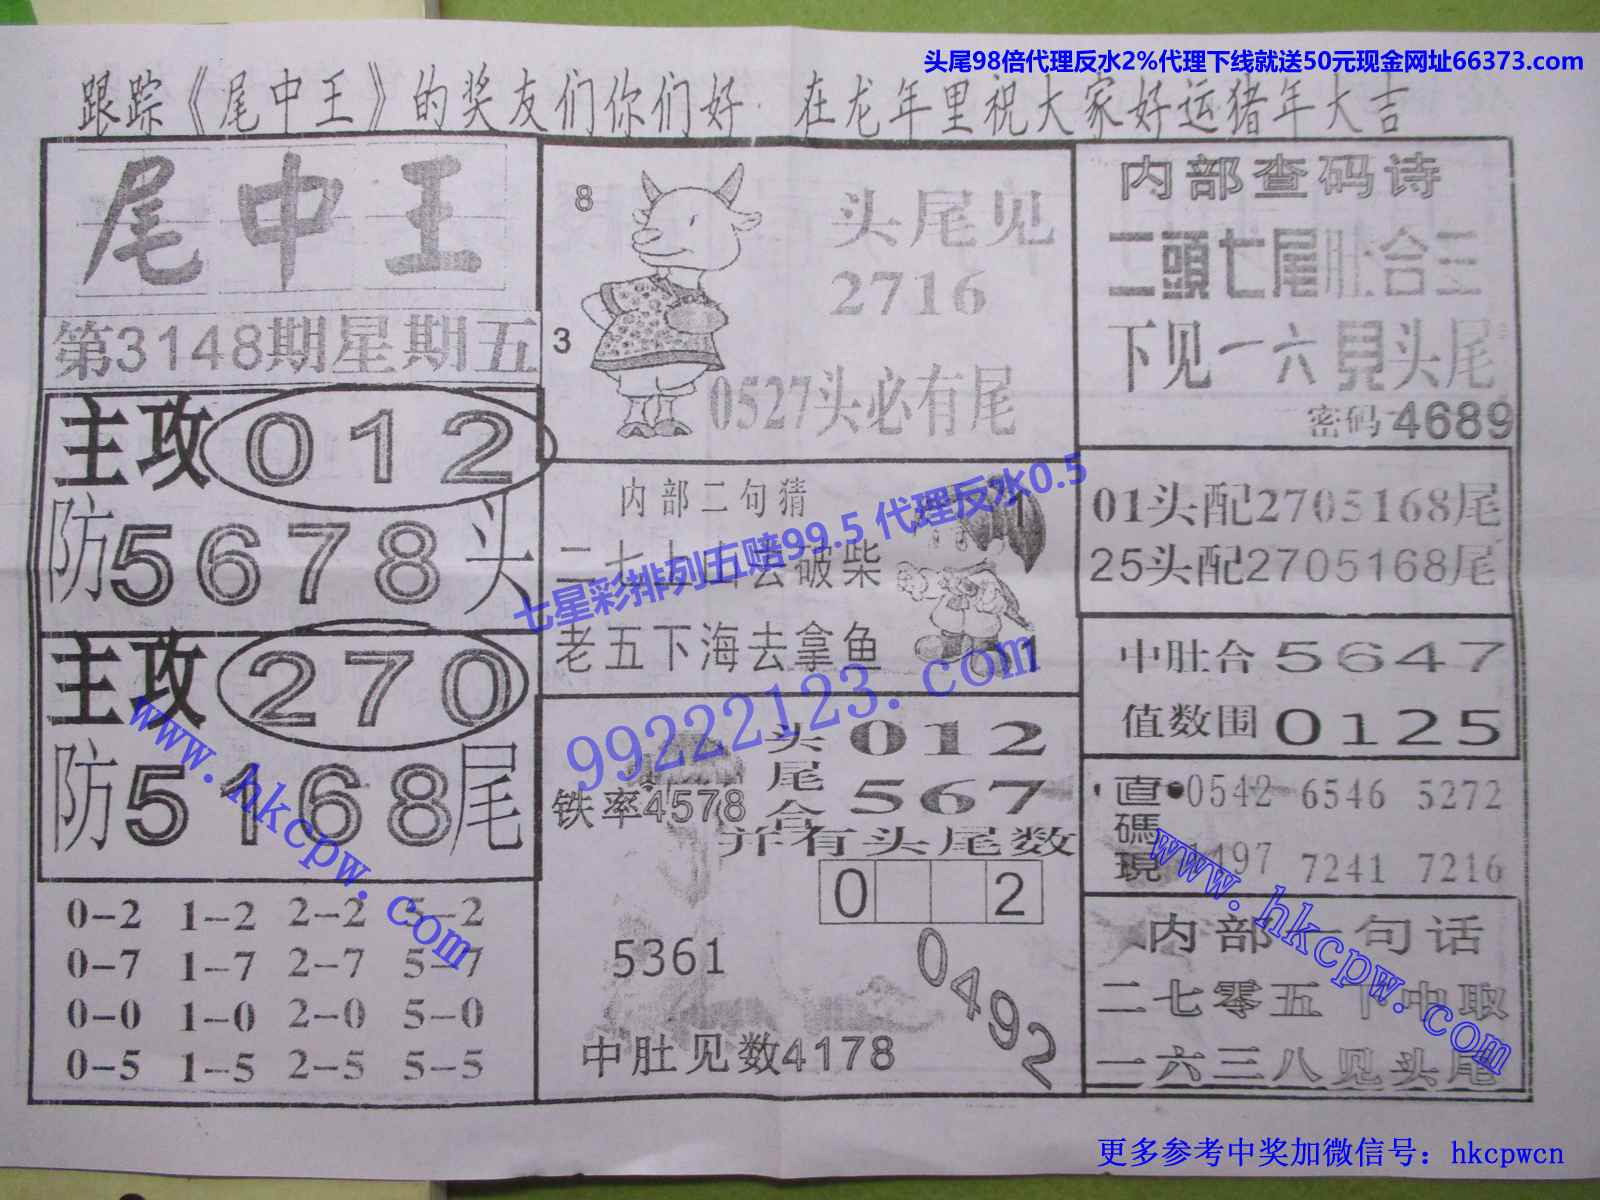 头尾98倍代理反水2%代理下线就送50元现金网址66373.com
跟踪《尾中王》的奖友们你们好 在龙年里祝大家好运猪年大吉
尾中王
第3148期星期五
主攻012
防5678头
主攻270
防5168尾
0-2 1-2 2-2 5-2
0-7 1-7 2-7 5-7
0-0 1-0 2-0 5-0
0-5 1-5 2-5 5-5
8
3
头尾见
2716
0527头必有尾
内部二句猜
二七上山去破柴
老五下海去拿鱼
1
七星彩排列五赔99.5 代理反水0.5
99222123.com
头尾合
012
567
铁率4578
并有头尾数
0 2
5361
0492
中肚见数4178
内部查码诗
二頭七尾肚合三
下见一六見头尾
密码4689
01头配2705168尾
25头配2705168尾
中肚合5647
值数围0125
直碼現
0542 6546 5272
1497 7241 7216
内部一句话
二七零五 中取
一六三八见头尾
www.hkcpw.com
www.hkcpw.com
更多参考中奖加微信号：hkcpwcn